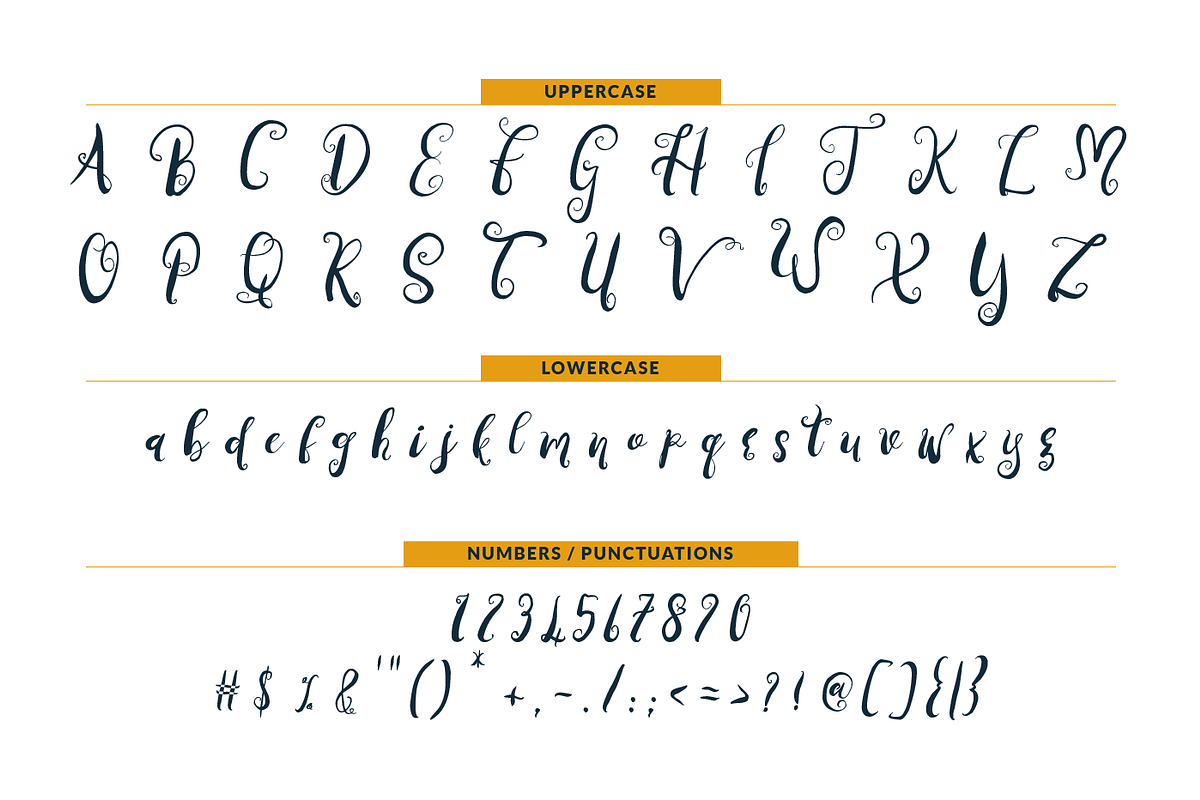 UPPERCASE
A B C D E F G H I J K L M
O P Q R S T U V W X Y Z
LOWERCASE
a b c d e f g h i j k l m n o p q r s t u v w x y z
NUMBERS / PUNCTUATIONS
1 2 3 4 5 6 7 8 9 0
# $ % & ' " ( ) * + , - . / : ; < = > ? ! @ [ ] { | }